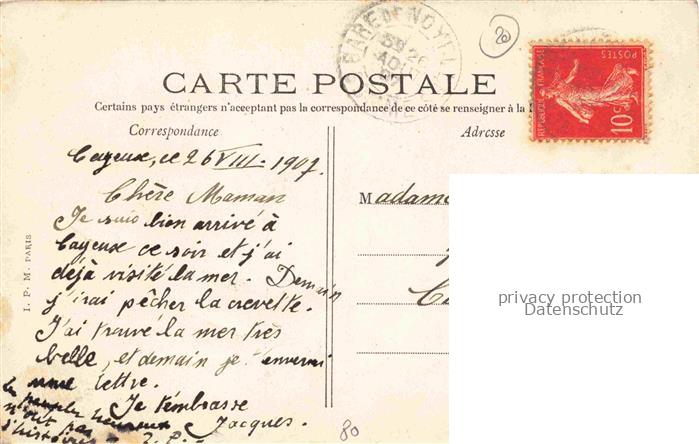 CARTE POSTALE
Certains pays étrangers n'acceptant pas la correspondance de ce côté se renseigner à la
Correspondance
Adresse
Cayeux, ce 26 VIII. 1907.
Chère Maman
Je suis bien arrivé à
Cayeux ce soir et j'ai
déjà visité la mer. Demain
j'irai pêcher la crevette.
J'ai trouvé la mer très
belle, et demain je t'enverrai
une lettre.
Je t'embrasse
Jacques.
les peuples heureux
n'ont pas
d'histoire
Madame
I. P. M. PARIS
REPUBLIQUE FRANÇAISE
POSTES
10 c
20
80
privacy protection
Datenschutz